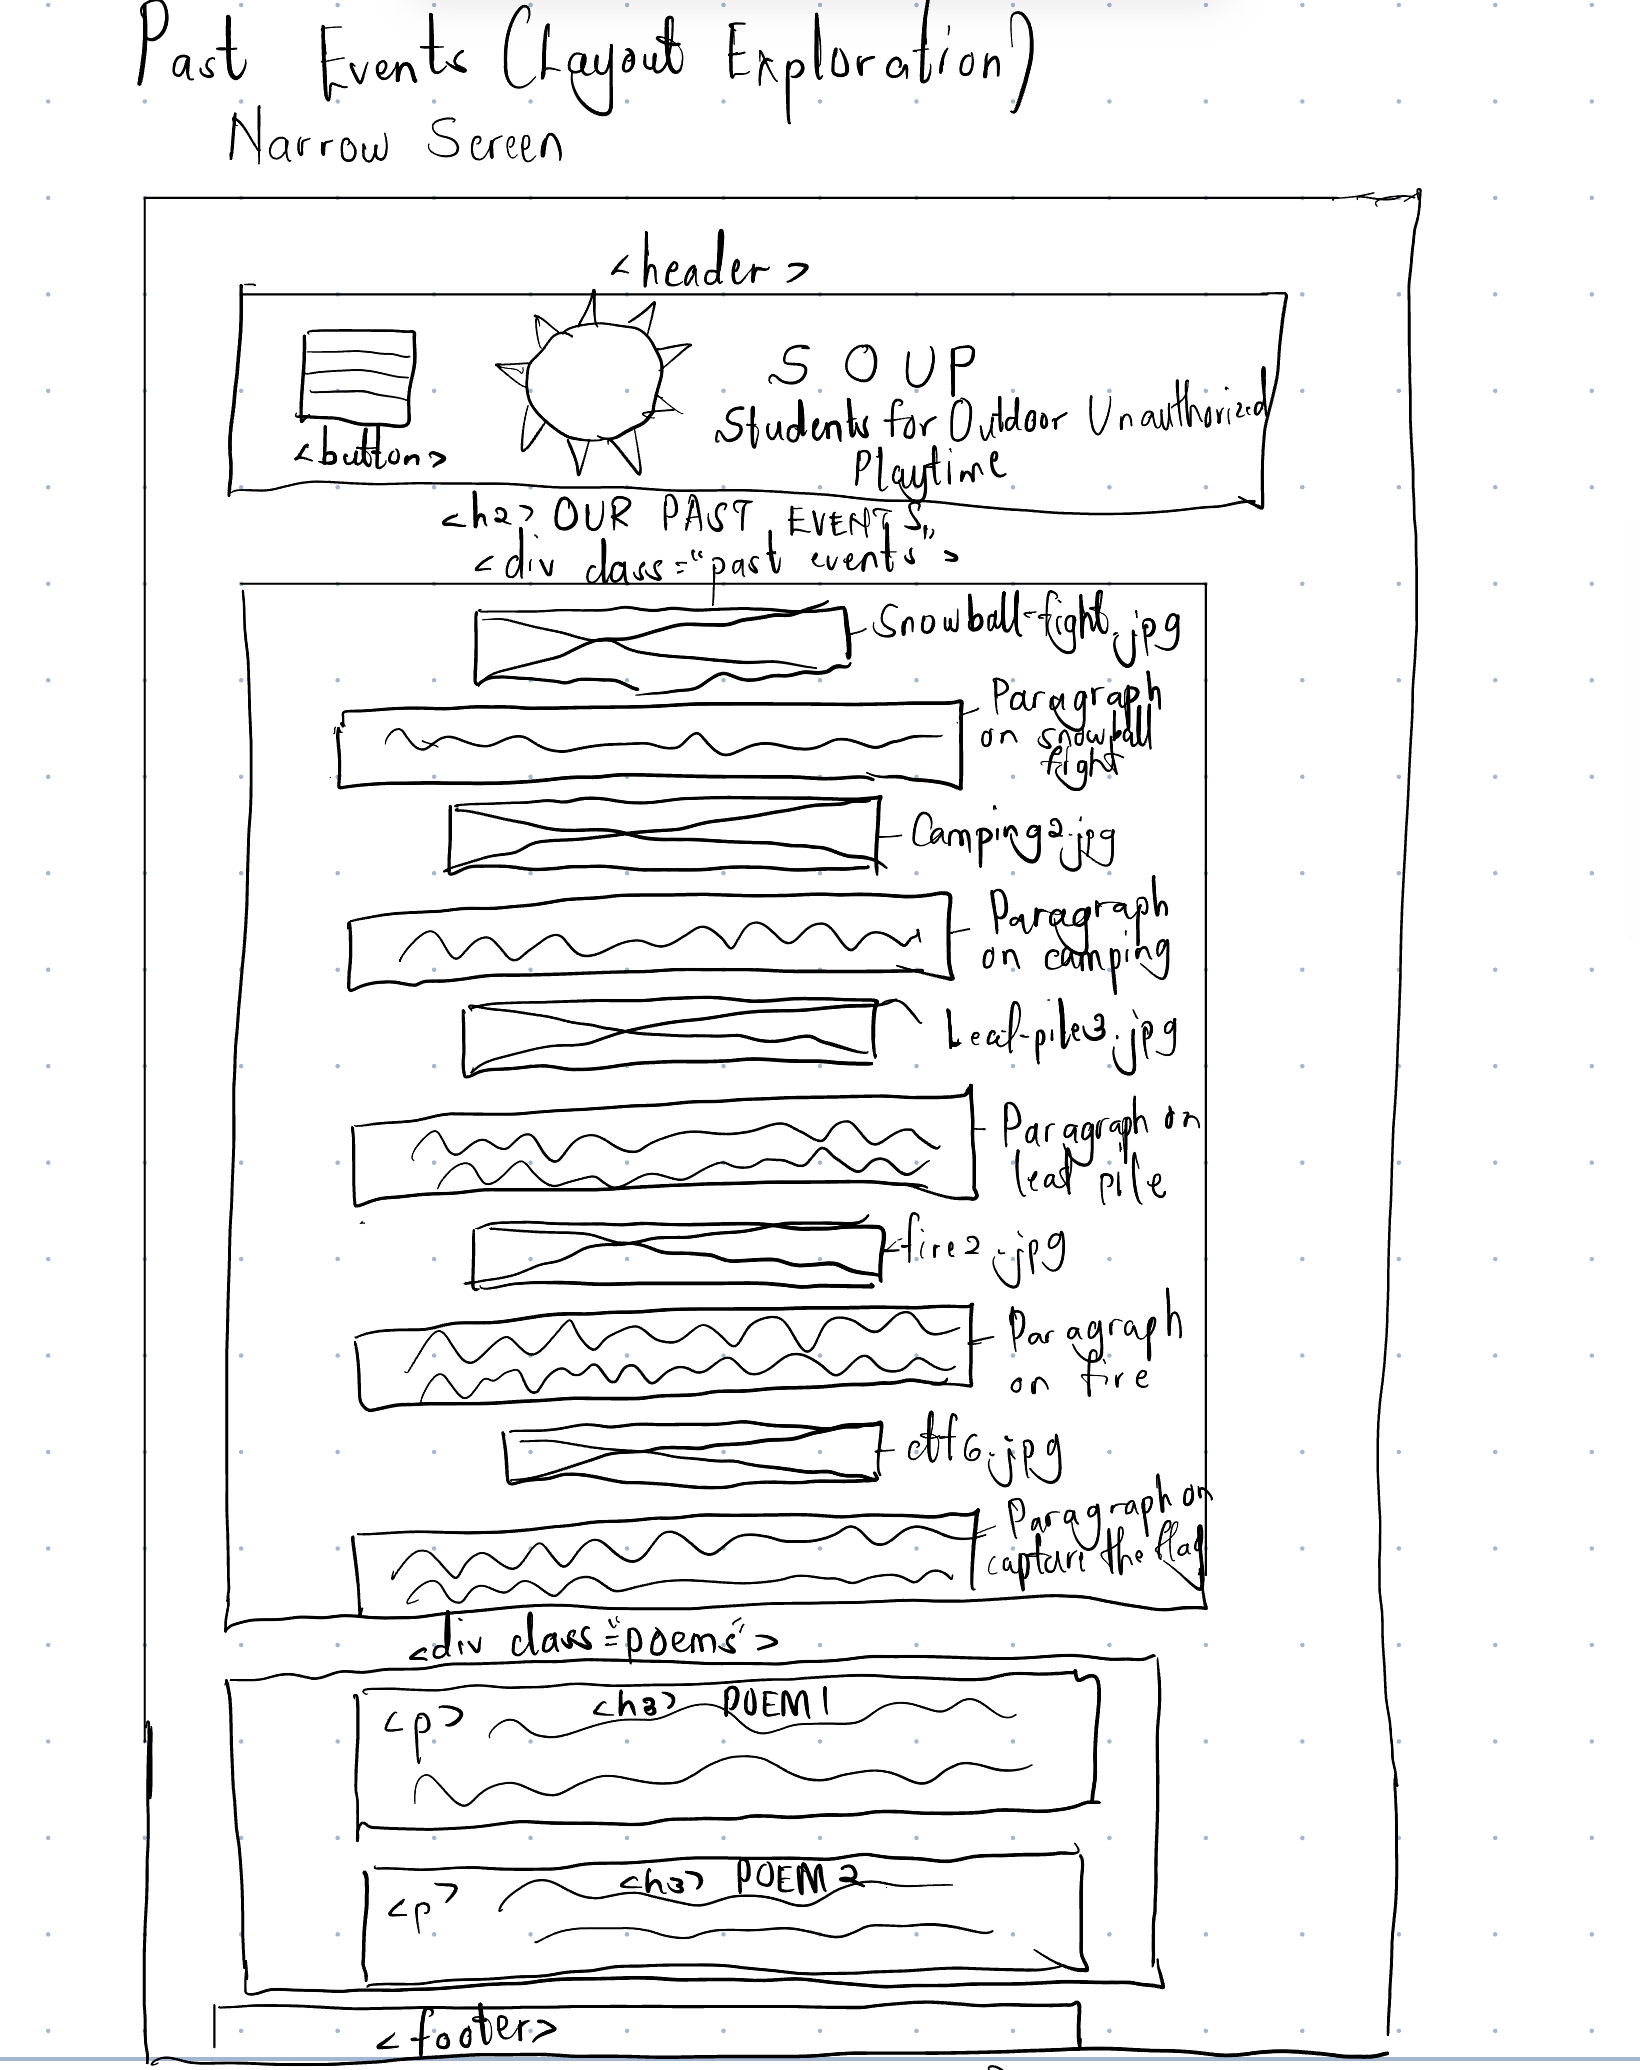 Past Events (Layout Exploration)
Narrow Screen
<header>
SOUP
Students for Outdoor Unauthorized
Playtime
<button>
<h2> OUR PAST EVENTS
<div class="past events">
Snowball-fight.jpg
Paragraph
on snowball
fight
Camping2.jpg
Paragraph
on camping
Leaf-pile3.jpg
Paragraph on
leaf pile
fire2.jpg
Paragraph
on fire
ctf6.jpg
Paragraph on
capture the flag
<div class="poems">
<h3> POEM1
<p>
<h3> POEM2
<p>
<footer>